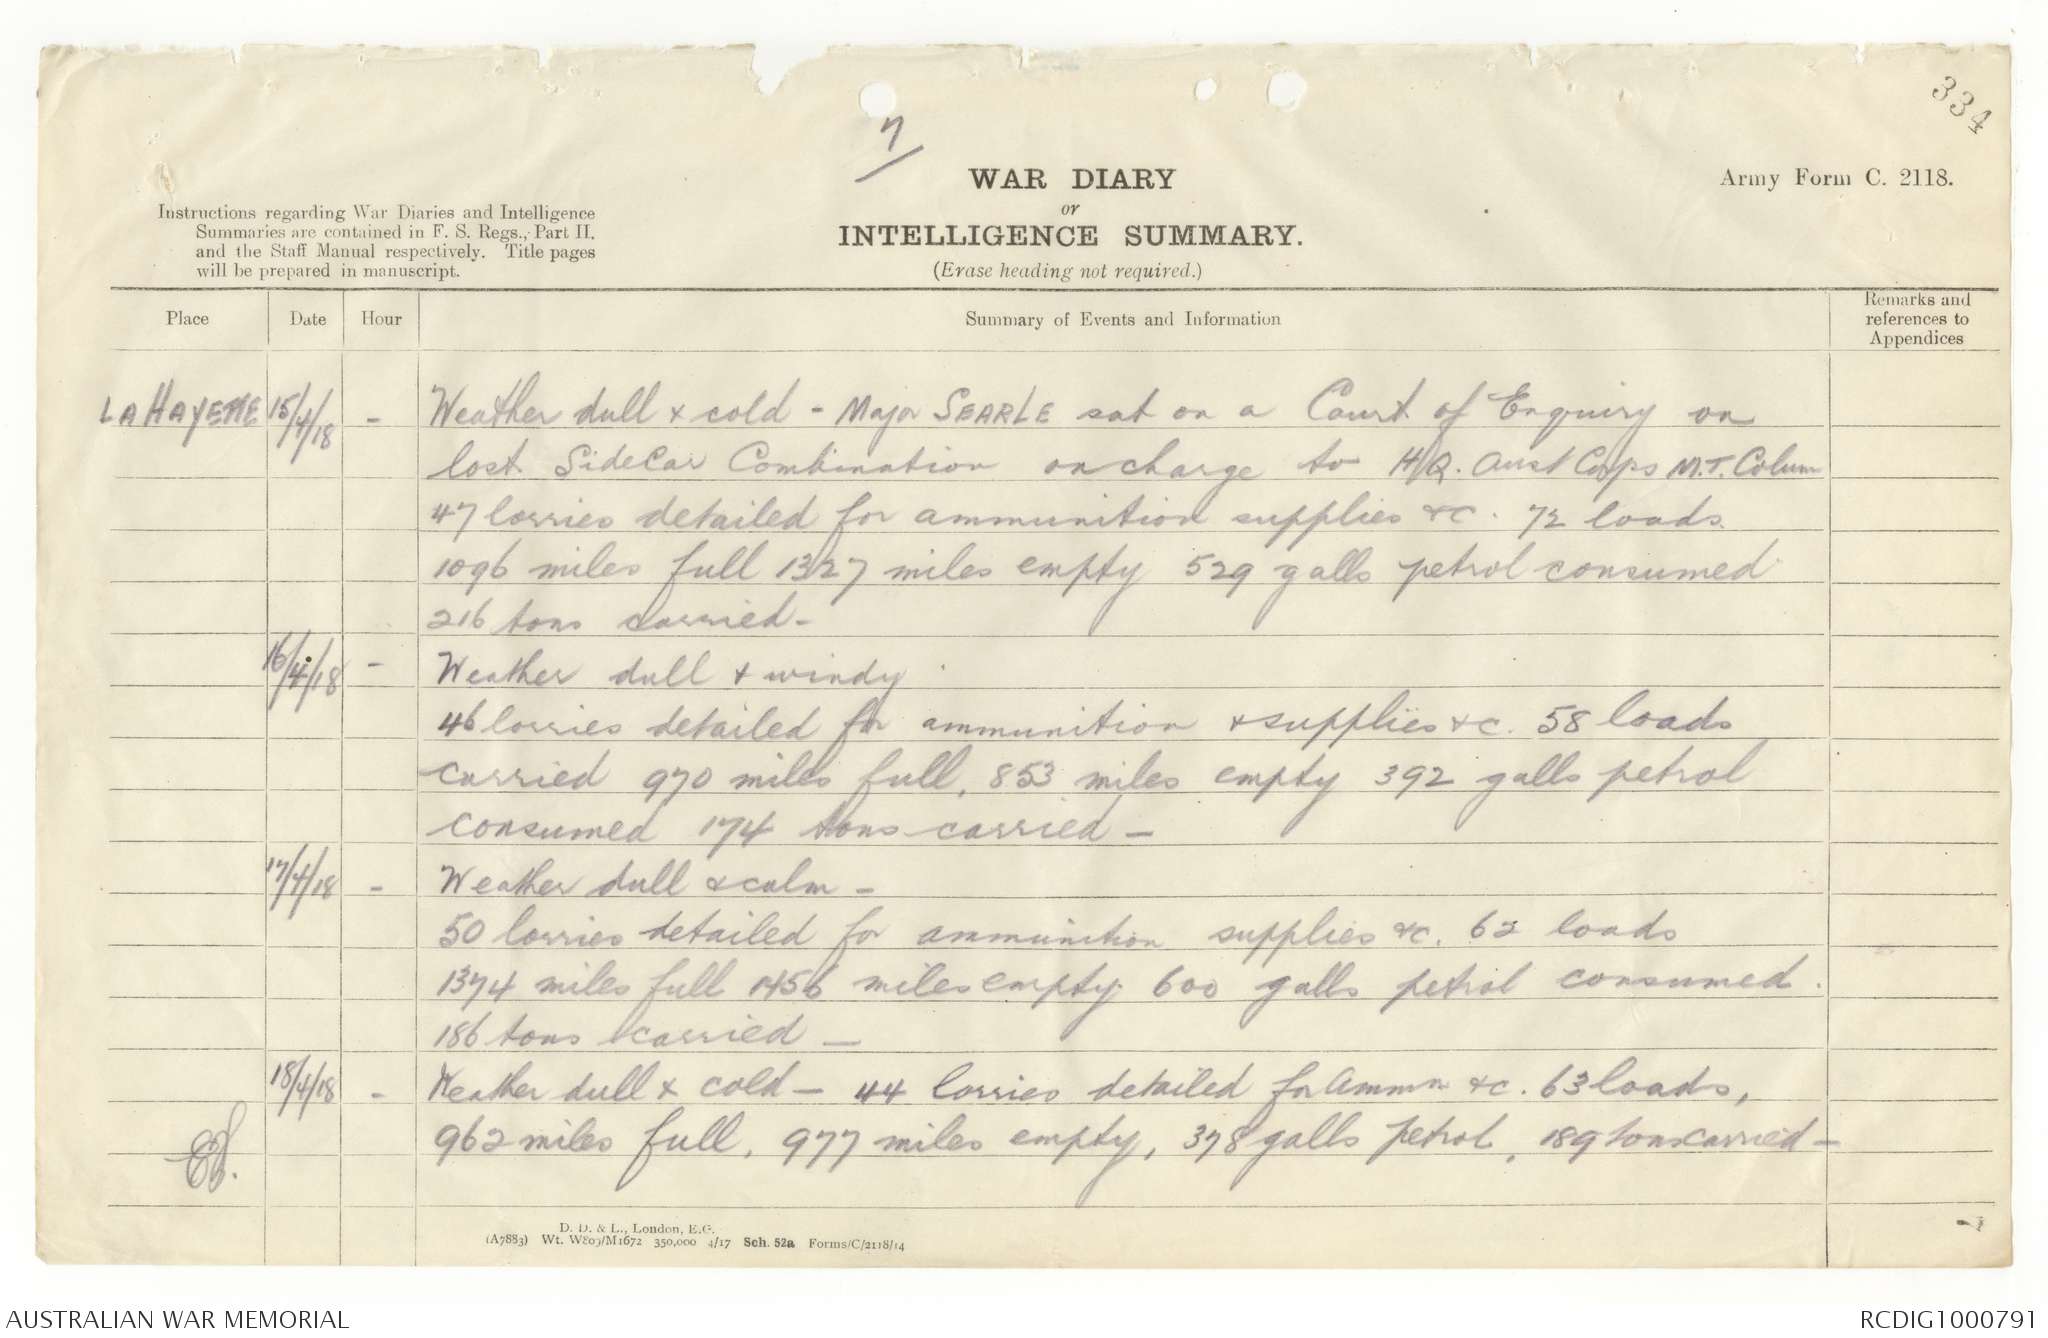 334
7
WAR DIARY
or
INTELLIGENCE SUMMARY.
(Erase heading not required.)
Army Form C. 2118.
Instructions regarding War Diaries and Intelligence
Summaries are contained in F. S. Regs., Part II.
and the Staff Manual respectively. Title pages
will be prepared in manuscript.
Place Date Hour Summary of Events and Information Remarks and references to Appendices
LA HAYETTE 15/4/18 - Weather dull & cold - Major SEARLE sat on a Court of Enquiry on
lost SideCar Combination on charge to H.Q. Aust Corps M.T. Column
47 lorries detailed for ammunition supplies &c. 72 loads
1096 miles full 1327 miles empty 529 galls petrol consumed
216 tons carried -
16/4/18 - Weather dull & windy
46 lorries detailed for ammunition & supplies &c. 58 loads
carried 970 miles full, 853 miles empty 392 galls petrol
consumed 174 tons carried -
17/4/18 - Weather dull & calm -
50 lorries detailed for ammunition supplies &c. 62 loads
1374 miles full 1456 miles empty 600 galls petrol consumed.
186 tons carried -
18/4/18 - Weather dull & cold - 44 lorries detailed for Ammn &c. 63 loads,
962 miles full, 977 miles empty, 378 galls petrol, 189 tons carried -
D. D. & L., London, E.C.
(A7883) Wt. W809/M1672 350,000 4/17 Sch. 52a Forms/C/2118/14
AUSTRALIAN WAR MEMORIAL
RCDIG1000791